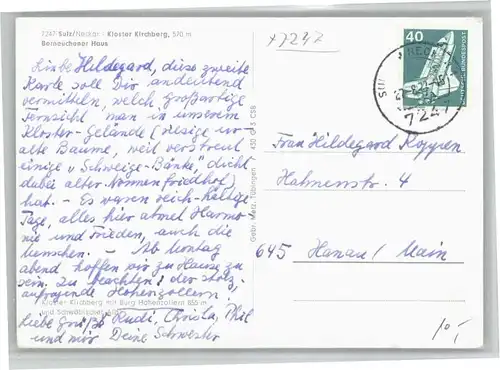 7247 Sulz/Neckar - Kloster Kirchberg, 570 m
Berneuchener Haus
Liebe Hildegard, diese zweite
Karte soll Dir andeutend
vermitteln, welch großartige
Fernsicht man in unserem
Kloster-Gelände (riesige ur-
alte Bäume, weit verstreut
einige "Schweige-Bänke", dicht
dabei alter Nonnenfriedhof)
hat. - Es waren reich-haltige
Tage, alles hier atmet Harmo-
nie und Frieden, auch die
Menschen. - Ab Montag
abend hoffen wir zu Hause zu
sein. Zu beachten: der stolz
aufragende Hohenzollern.
Kloster Kirchberg mit Burg Hohenzollern 855 m
und Schwäbischer Alb
Liebe Grüße Rudi, Christa, Phil
und mir Deine Schwester
Gebr. Metz, Tübingen
x7247
40
DEUTSCHE BUNDESPOST
7247
Frau Hildegard Koppen
Hahnenstr. 4
645 Hanau / Main
10,-